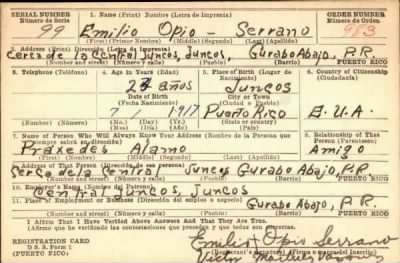 SERIAL NUMBER 1. Name (Print) Nombre (Letra de Imprenta) ORDER NUMBER
Número de Serie Número de Orden
99 Emilio Opio - Serrano 983
(First) (Primer Nombre) (Middle) (Segundo) (Last) (Apellido)
2. Address (Print) Dirección (Letra de Imprenta)
Cerca de la Central Juncos, Juncos, Gurabo Abajo, P.R.
Number and street (Número y calle) (Town) (Pueblo) (County) (Barrio) PUERTO RICO
3. Telephone (Teléfono) 4. Age in Years (Edad) 5. Place of Birth (Lugar de Nacimiento) 6. Country of Citizenship (Ciudadanía)
27 años Juncos
Date of Birth City or Town
(Fecha Nacimiento) (Ciudad o Pueblo)
7 1 1917 Puerto Rico E.U.A.
(State or country)
7. Name of Person Who Will Always Know Your Address (Nombre de la Persona que siempre sabrá su dirección) 8. Relationship of That Person (Parentesco)
Praxedes Alamo Amigo
(First) (Primer Nombre) (Middle) (Segundo) (Last) (Apellido)
9. Address of That Person (Dirección de esa persona)
Cerca de la Central Juncos Gurabo Abajo, P.R.
Number and street (Número y calle) (Town) (Pueblo) (County) (Barrio) PUERTO RICO
10. Employer's Name (Nombre del Patrono)
Central Juncos, Juncos
11. Place of Employment or Business (Dirección del empleo o negocio)
Gurabo Abajo, P.R.
Number and street (Número y calle) (Town) (Pueblo) (County) (Barrio) PUERTO RICO
I Affirm That I Have Verified Above Answers And That They Are True.
Afirmo que he verificado las contestaciones que preceden y que todas son correctas.
REGISTRATION CARD Emilio Opio Serrano
D. S. S. Form 1
(Registrant's signature) (Firma o marca del inscrito)
(PUERTO RICO) Victor